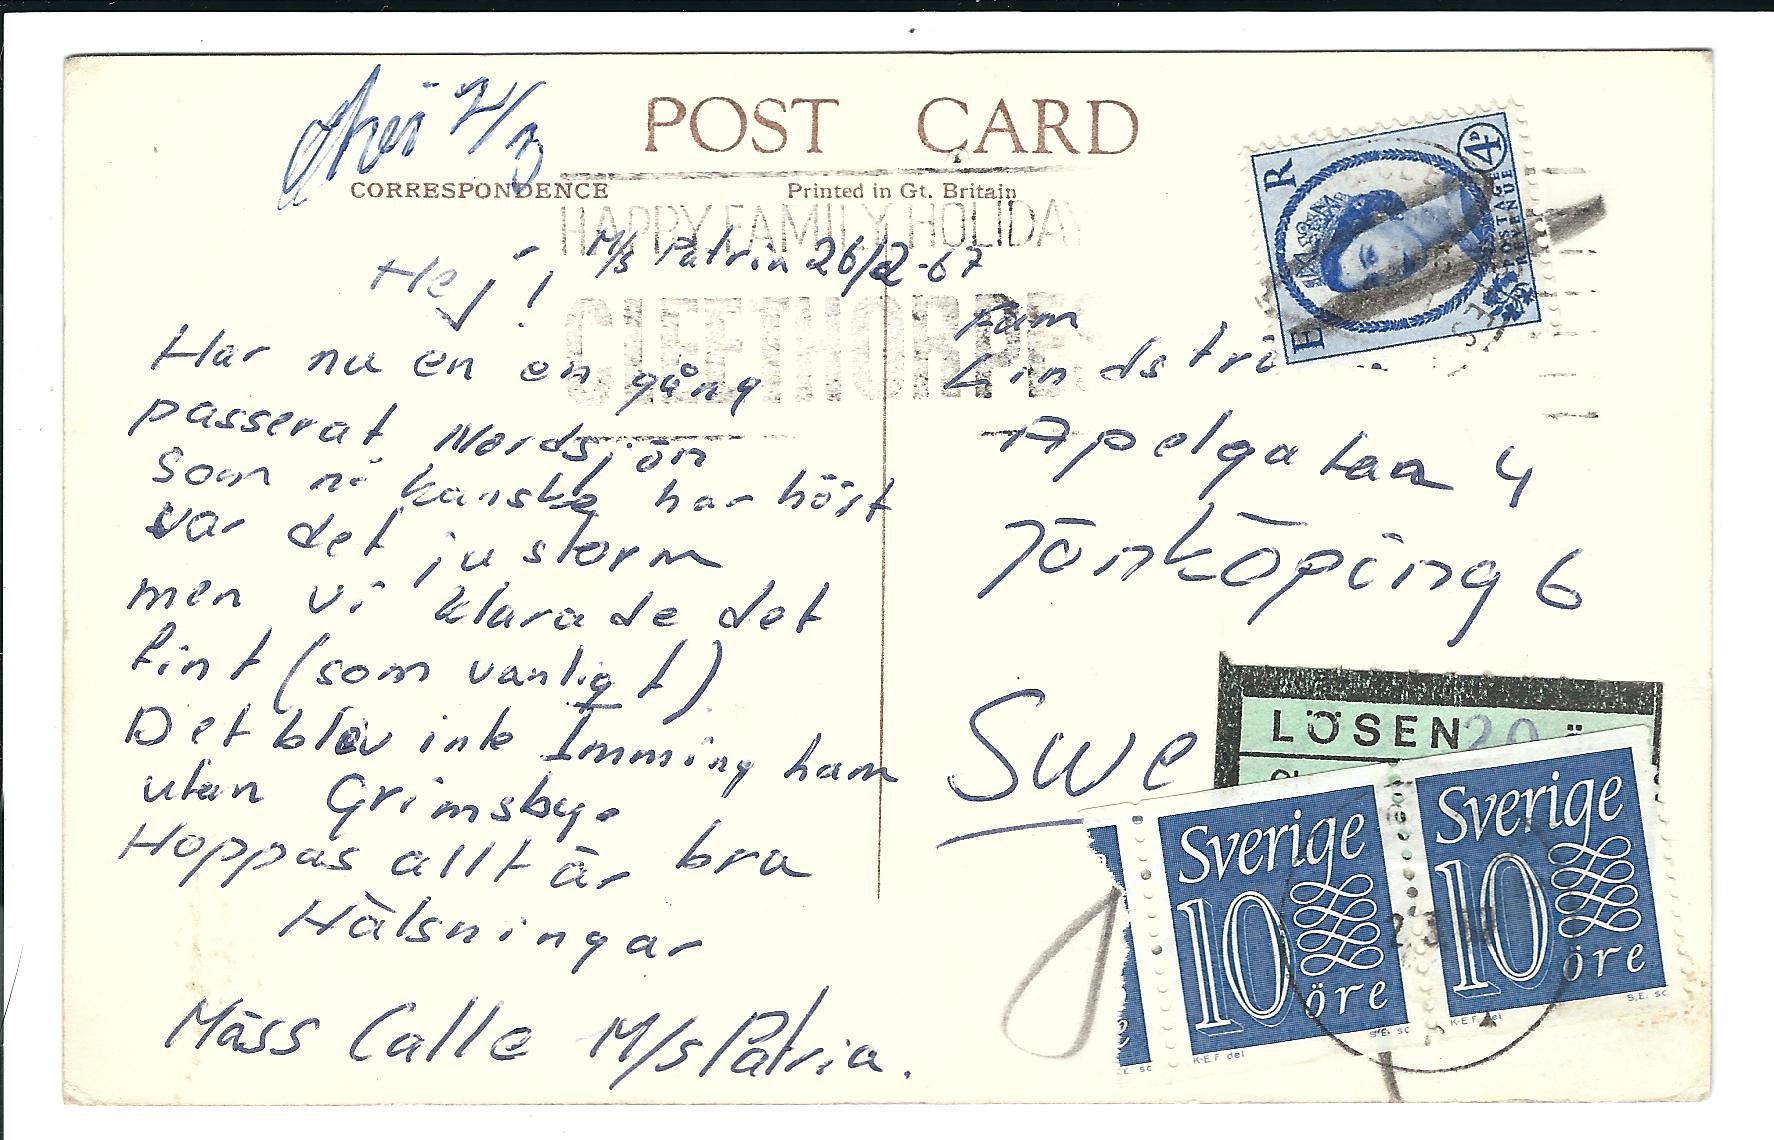 2/3
POST CARD
CORRESPONDENCE
Printed in Gt. Britain
HAPPY FAMILY HOLIDAY
CLEETHORPES
E R
4D
POSTAGE REVENUE
M/s Patria 26/2-67
Hej!
Har nu en en gång
passerat Nordsjön
som ni kanske har hört
var det ju storm
men vi klarade det
fint (som vanligt)
Det blev inte Immingham
utan Grimsby.
Hoppas allt är bra
Hälsningar
Mäss Calle M/s Patria.
Fam
Lindströ
Apelgatan 4
Jönköping 6
Swe
LÖSEN 20
Sverige
10
öre
K-E F del
S.E. SC
Sverige
10
öre
K-E F del
S.E. SC
2 3